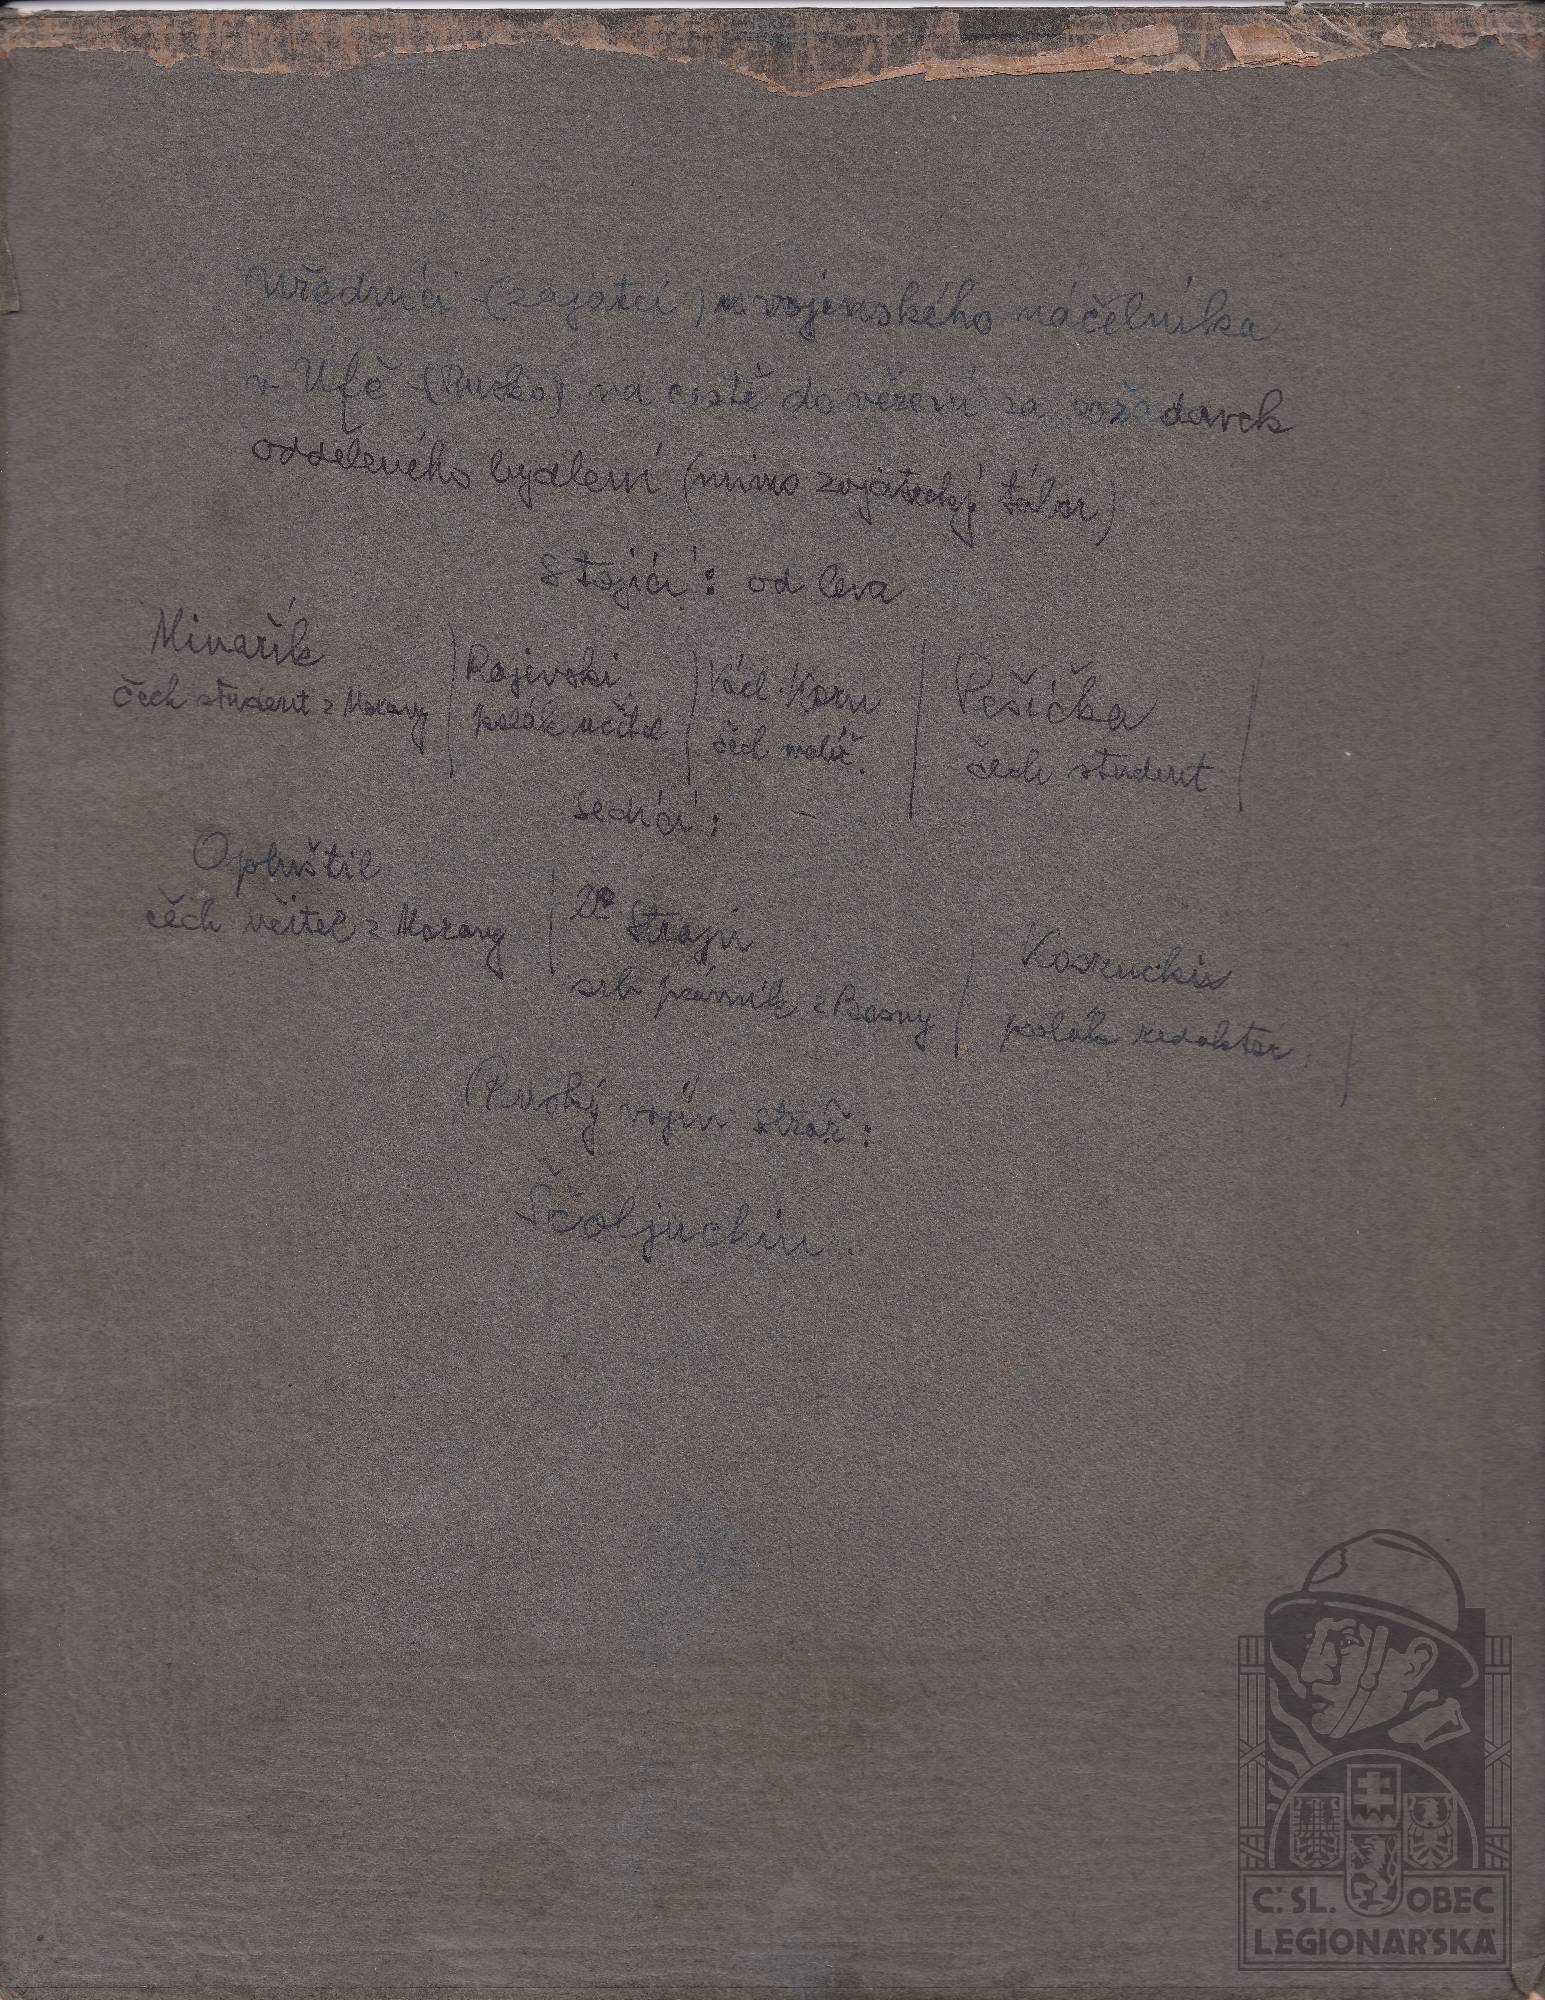 Uředníci (zajatci) u vojenského náčelníka
v Ufě (Rusko) na cestě do vězení za požadavek
odděleného bydlení (mimo zajatecký tábor)
Stojící: od leva
Minařík | Rajevski | Václ. Korn | Pešička |
čech student z Moravy | polák učitel | čech malíř. | čech student |
sedící:
Opluštil | Dr Strajn | Kosruckix
čech učitel z Moravy | srb právník z Bosny | polák redakter |
Ruský vojín stráž:
Ščoljuchin.
Č. SL. OBEC
LEGIONÁŘSKÁ